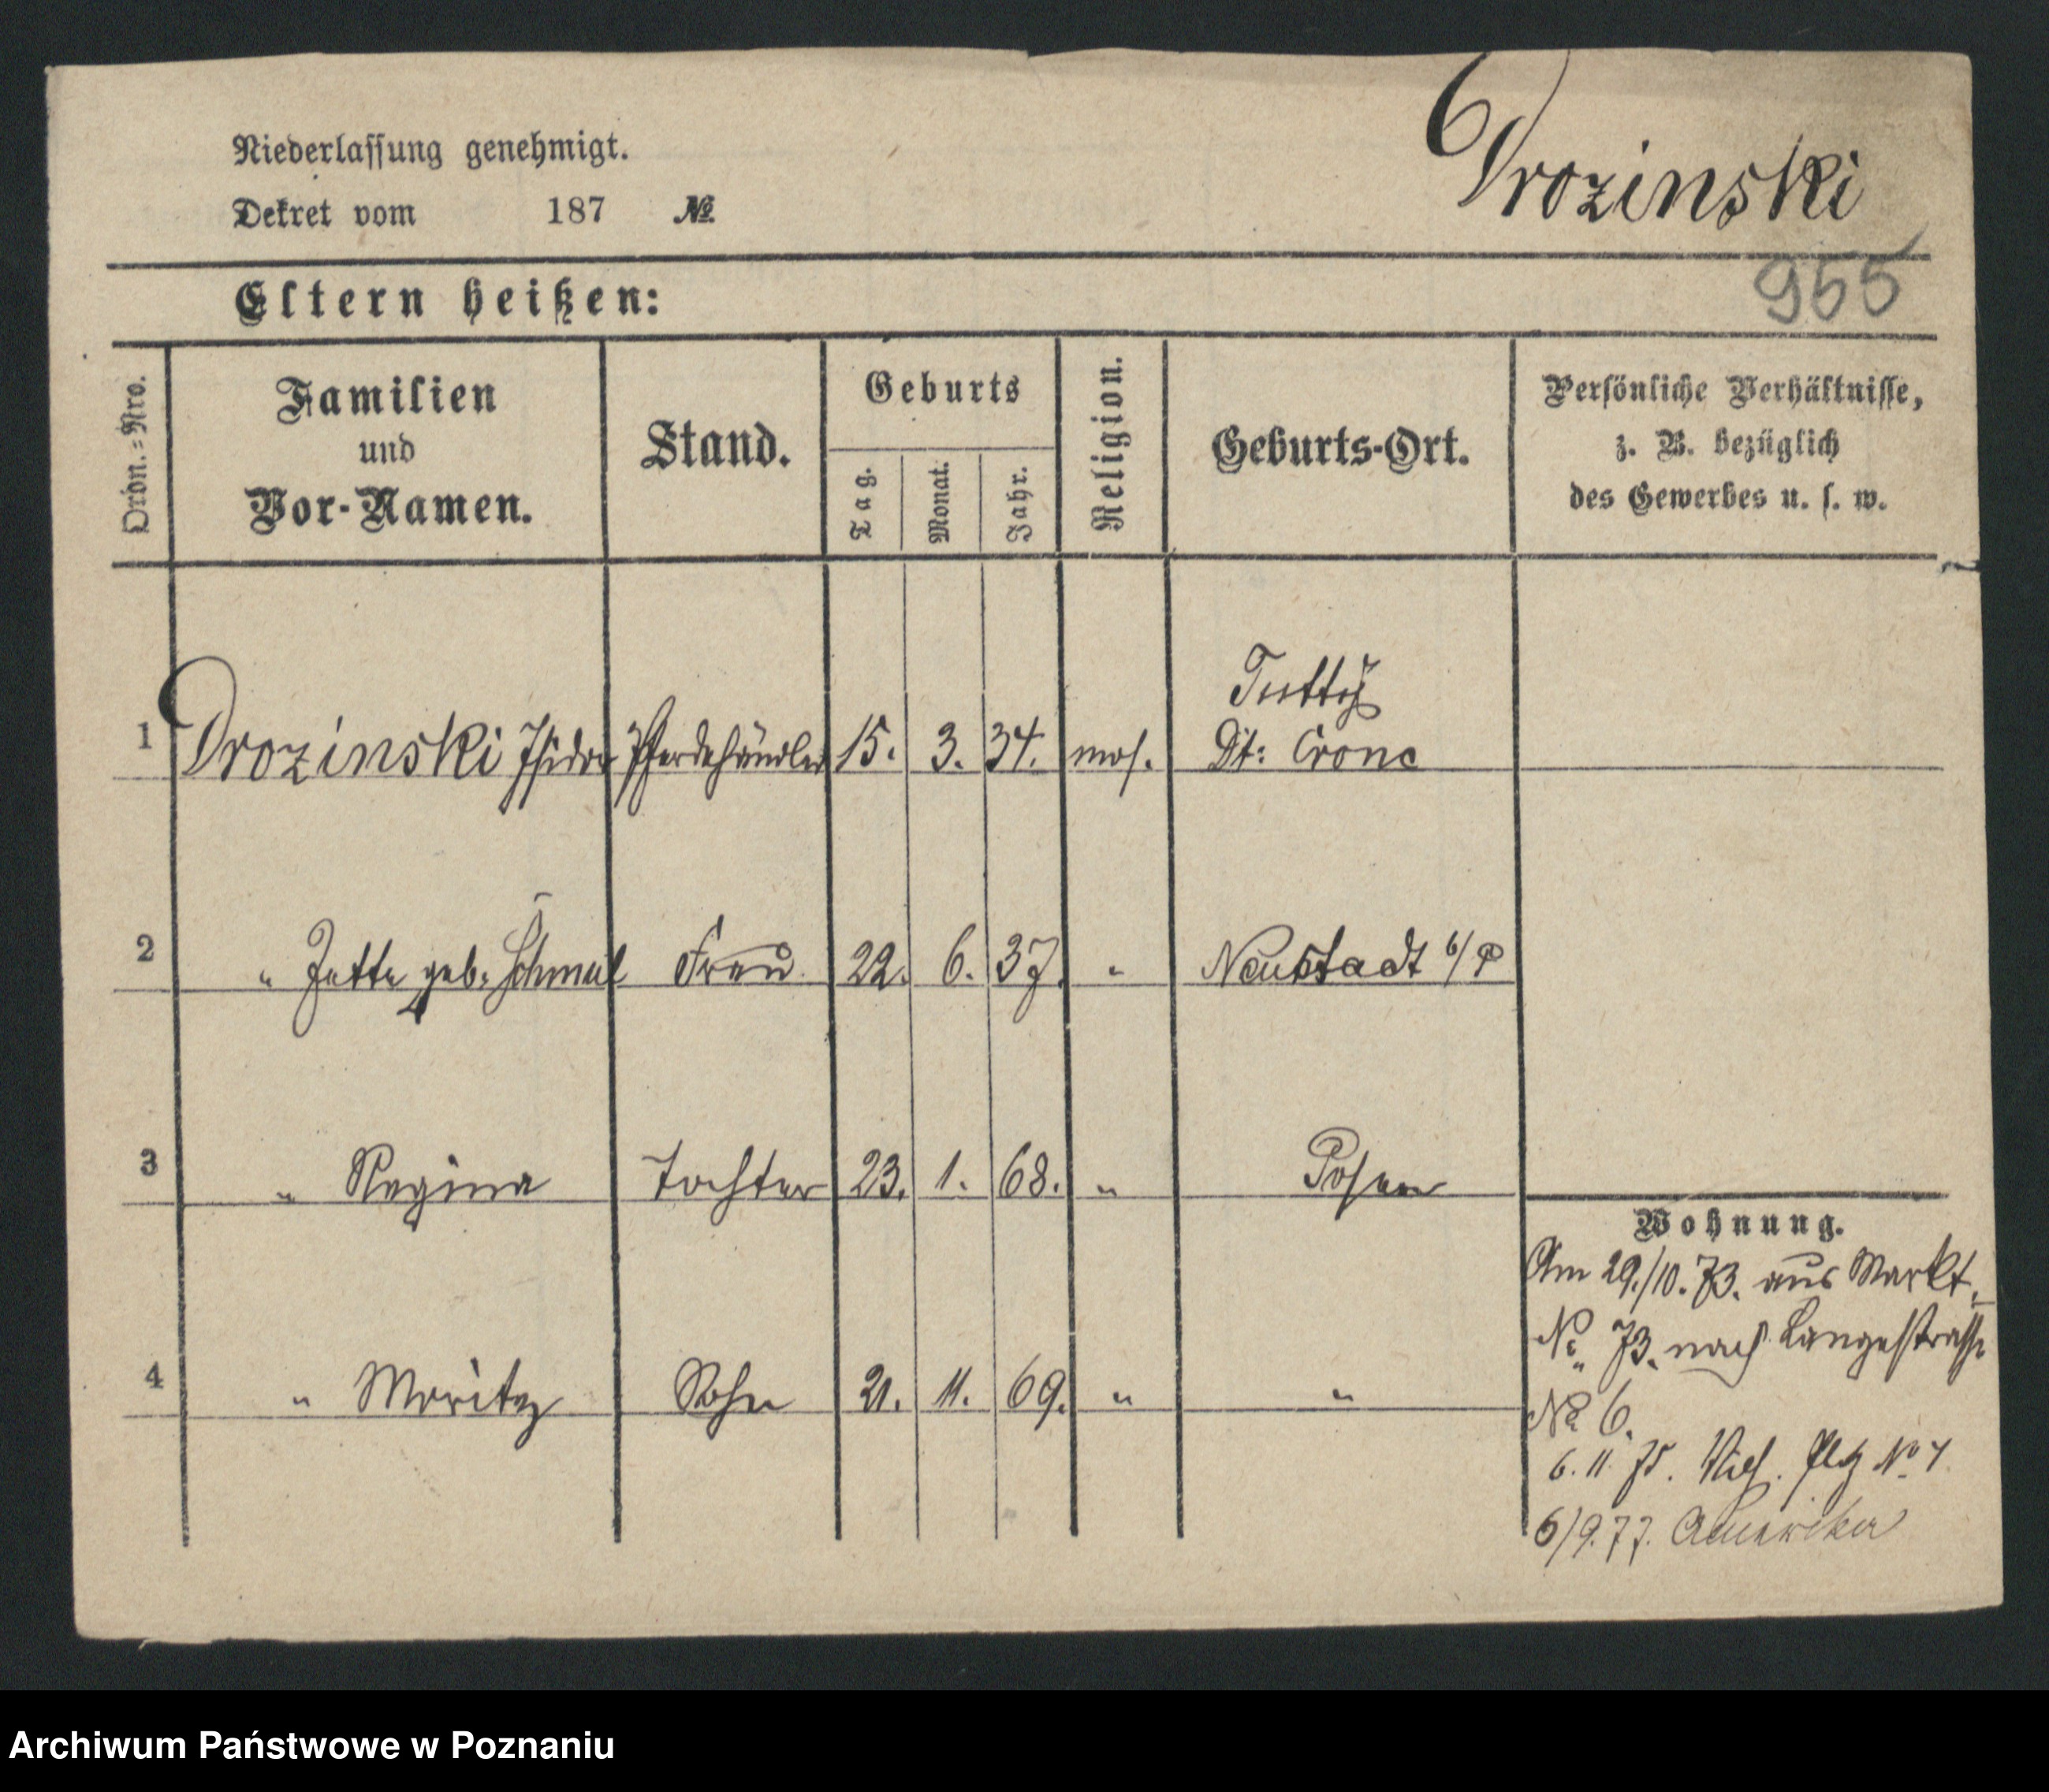 Niederlassung genehmigt.
Dekret vom 187 №
Drozinski
955
Eltern heißen:
Ordn.=Nro.
Familien
und
Vor-Namen.
Stand.
Geburts
Tag.
Monat.
Jahr.
Religion.
Geburts-Ort.
Persönliche Verhältnisse,
z. B. bezüglich
des Gewerbes u. s. w.
Tüttz
1 Drozinski Isidor Pferdehändler 15. 3. 34. mos. Dt: Crone
2 " Jette geb. Schmul Frau 22. 6. 37. " Neustadt b/P
3 " Regina Tochter 23. 1. 68. " Posen
4 " Moritz Sohn 21. 11. 69. " "
Wohnung.
Am 29./10. 73. aus Markt
No 73. nach Langestrasse
No 6.
6. 11. 75. No
6/9. 77. Amerika
Archiwum Państwowe w Poznaniu